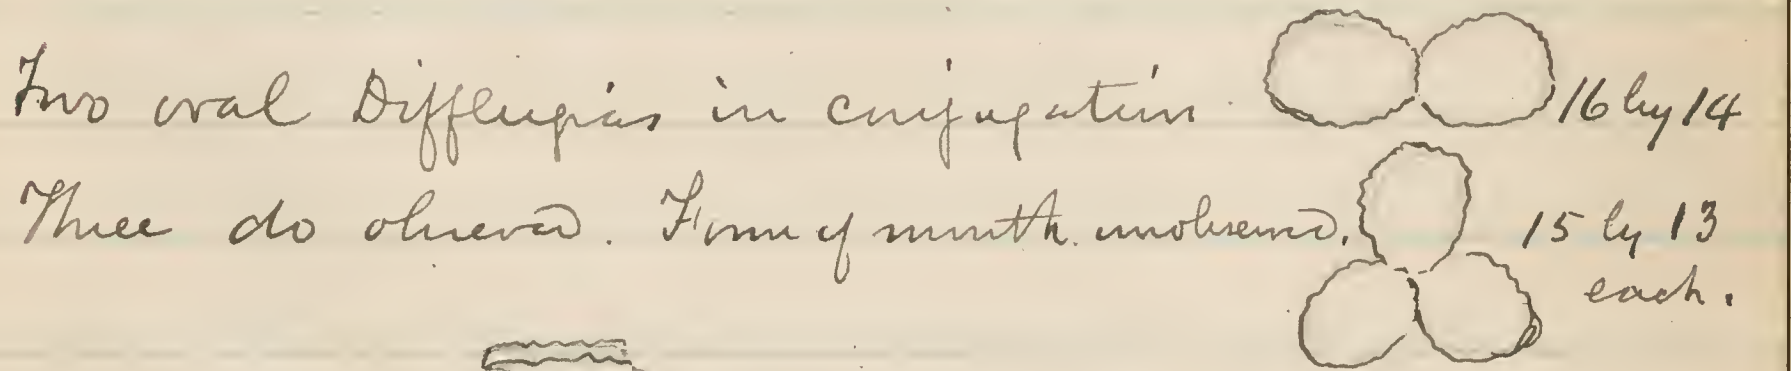 Two oval Difflugias in conjugation 16 by 14
Three do observed. Form of mouth unobserved. 15 by 13
each.